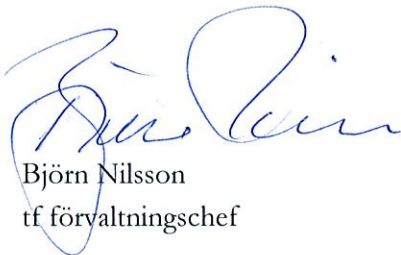 Björn Nilsson
tf förvaltningschef